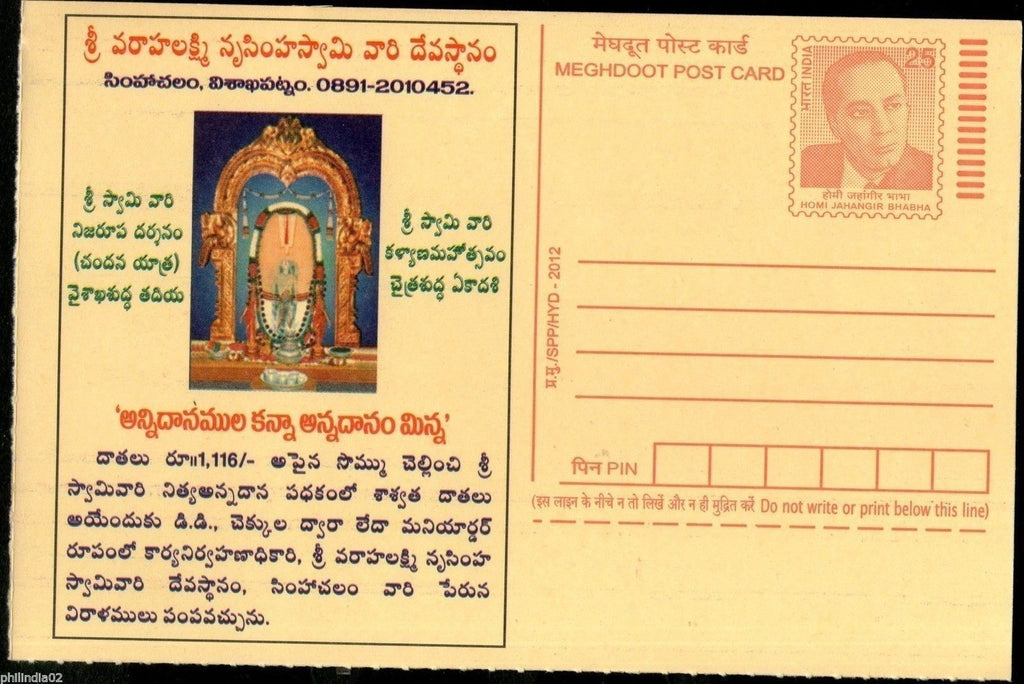 శ్రీ వరాహలక్ష్మి నృసింహస్వామి వారి దేవస్థానం
సింహాచలం, విశాఖపట్నం. 0891-2010452.
శ్రీ స్వామి వారి
నిజరూప దర్శనం
(చందన యాత్ర)
వైశాఖశుద్ధ తదియ
శ్రీ స్వామి వారి
కళ్యాణమహోత్సవం
చైత్రశుద్ధ ఏకాదశి
'అన్నిదానముల కన్నా అన్నదానం మిన్న'
దాతలు రూ॥1,116/- అపైన సొమ్ము చెల్లించి శ్రీ
స్వామివారి నిత్యఅన్నదాన పధకంలో శాశ్వత దాతలు
అయేందుకు డి.డి., చెక్కుల ద్వారా లేదా మనియార్డర్
రూపంలో కార్యనిర్వహణాధికారి, శ్రీ వరాహలక్ష్మి నృసింహ
స్వామివారి దేవస్థానం, సింహాచలం వారి పేరున
విరాళములు పంపవచ్చును.
मेघदूत पोस्ट कार्ड
MEGHDOOT POST CARD
भारत INDIA
25
होमी जहांगीर भाभा
HOMI JAHANGIR BHABHA
प्र.मु./SPP/HYD - 2012
पिन PIN
(इस लाइन के नीचे न तो लिखें और न ही मुद्रित करें Do not write or print below this line)
philindia02